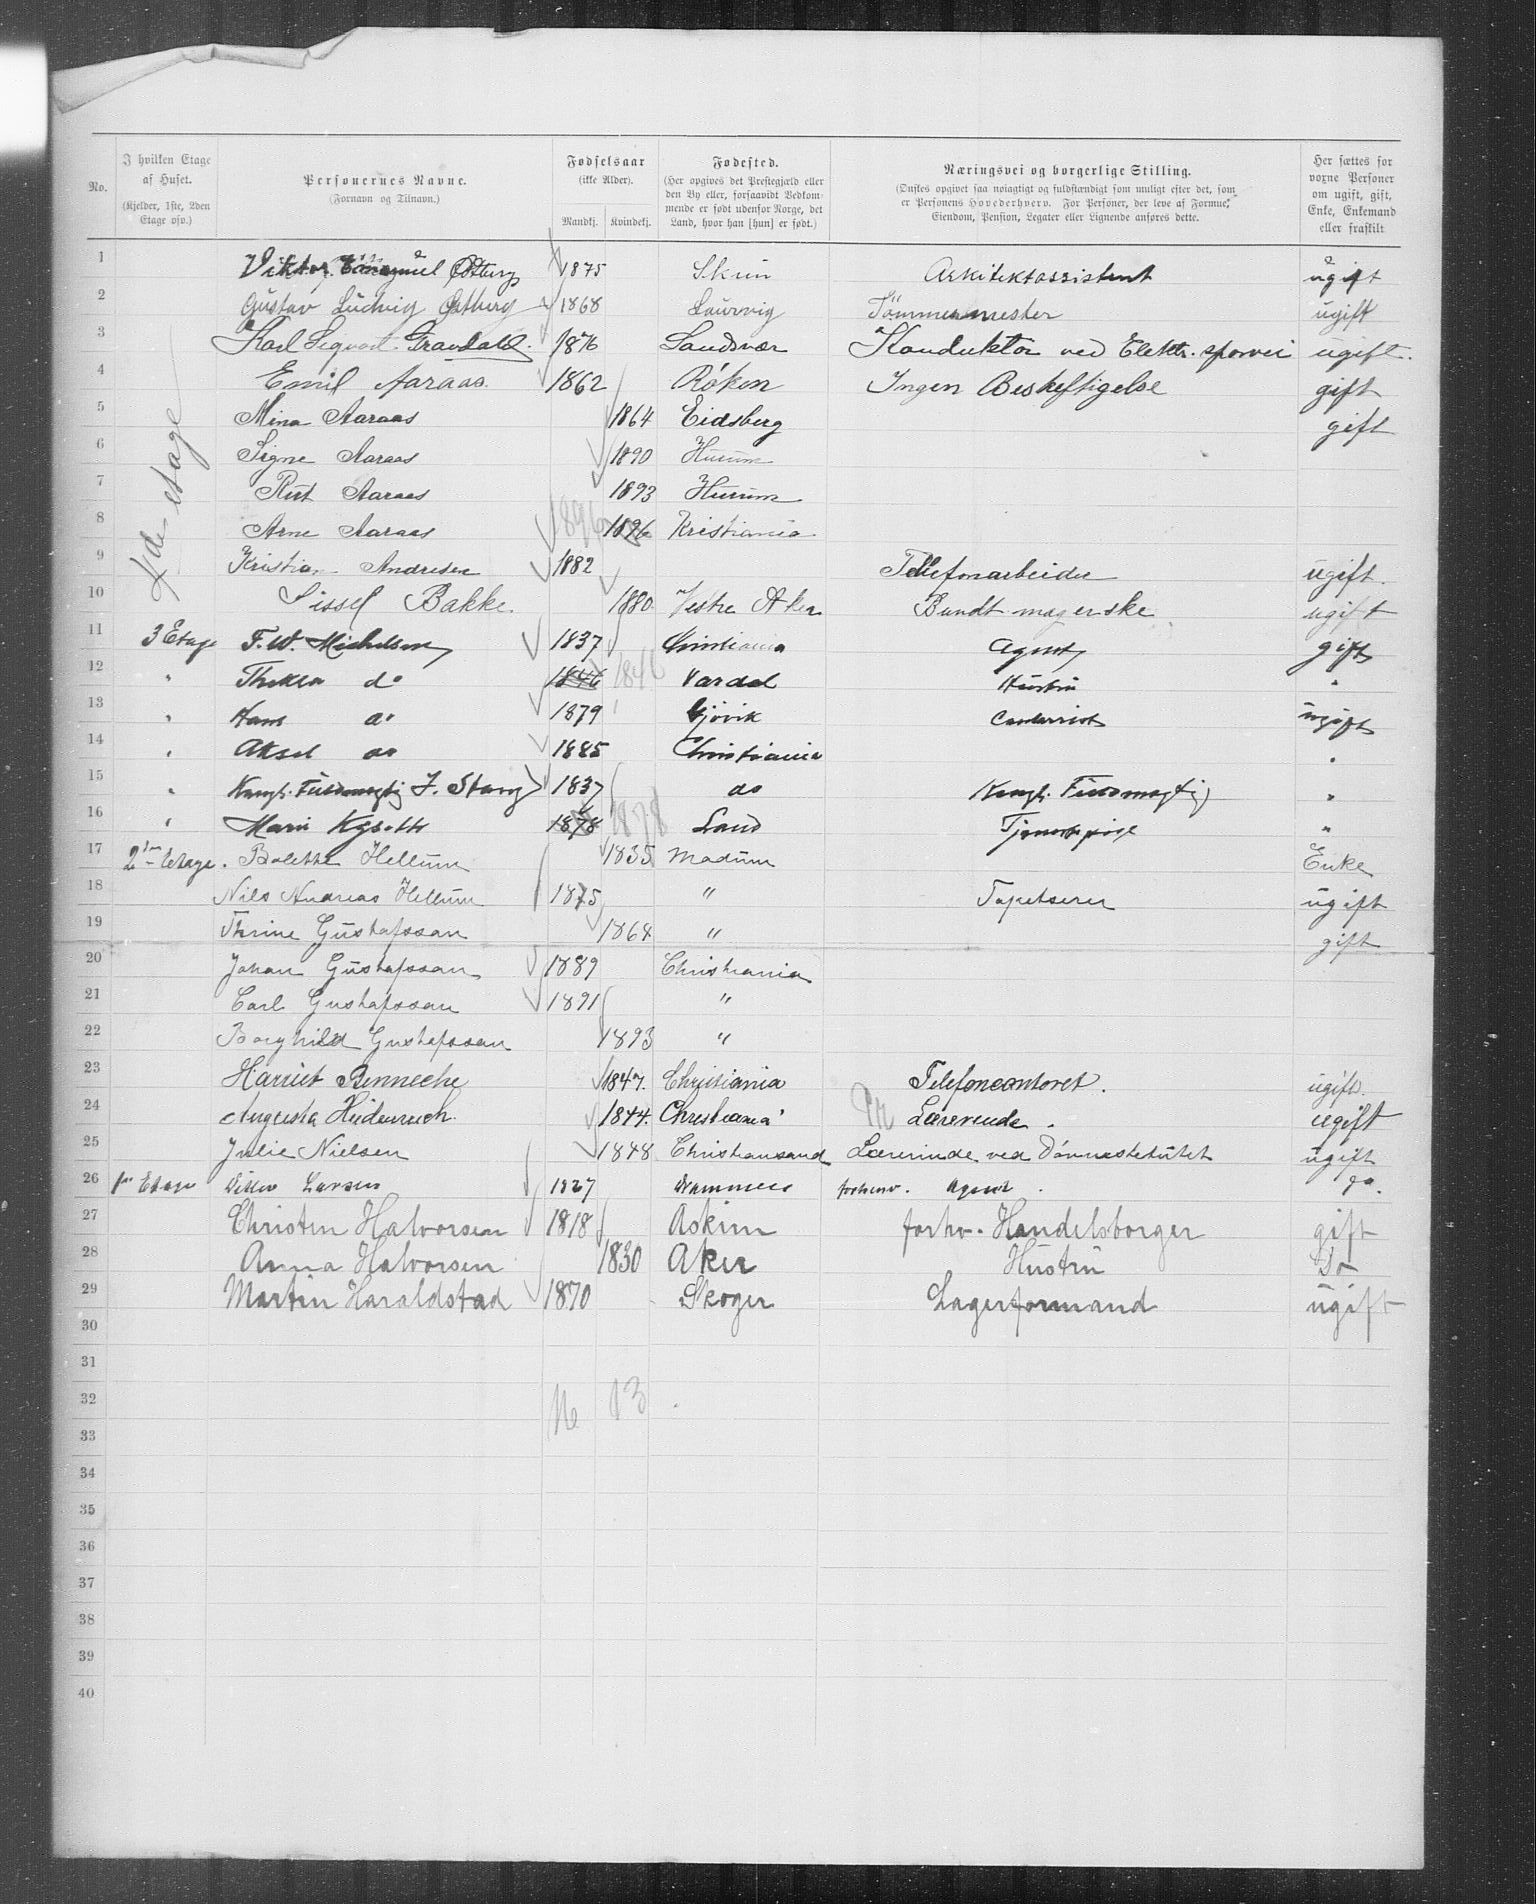 No. I hvilken Etage af Huset. (Kjelder, 1ste, 2den Etage osv.) Personernes Navne. (Fornavn og Tilnavn.) Fødselsaar (ikke Alder). Mandkj. Kvindekj. Fødested. (Her opgives det Prestegjæld eller den By eller, forsaavidt Vedkommende er født udenfor Norge, det Land, hvor han [hun] er født.) Næringsvei og borgerlige Stilling. (Ønskes opgivet saa nøiagtigt og fuldstændigt som muligt efter det, som er Personens Hovederhverv. For Personer, der leve af Formue, Eiendom, Pension, Legater eller Lignende anføres dette.) Her sættes for voxne Personer om ugift, gift, Enke, Enkemand eller fraskilt
4de etage
1 Viktor Emanuel Østberg 1875 Skien Arkitektassistent ugift
2 Gustav Ludvig Østberg 1868 Laurvig Tömmermester ugift
3 Karl Sigvart Gravdahl. 1876 Sandsvær Konduktör ved Elektr. sporvei ugift.
4 Emil Aaraas. 1862 Røken Ingen Beskeftigelse gift
5 Mina Aaraas 1864 Eidsberg gift
6 Signe Aaraas 1890 Hurum
7 Rut Aaraas 1893 Hurum
8 Arne Aaraas 1896 1896 Kristiania
9 Kristian Andresen 1882 Telefonarbeider ugift.
10 Sissel Bakke. 1880 Vestre Aker Bundtmagerske ugift
11 3 Etage F. W. Michelsen 1837 Christiania Agent gift
12 " Thekla do 1846 1846 Vardal Hustru "
13 " Hans do 1879 Gjövik Contorist ugift
14 " Aksel do 1885 Christiania "
15 " Kongl. Fuldmægtig J. Stang 1837 do Kongl. Fuldmægtig "
16 " Marie 1878 1878 Land Tjenestepige "
17 2den Etage. Bolette Hellum 1835 Modum Enke
18 Nils Andreas Hellum 1875 " Tapetserer ugift
19 Thrine Gustafssan 1864 " gift
20 Johan Gustafssan 1889 Christiania
21 Carl Gustafssan 1891 "
22 Borghild Gustafssan 1893 "
23 Harriet Benneche 1847. Christiania Telefoncontoret. ugift.
24 Augusta Heidenreich. 1844. Christiania Pr Lærerinde. ugift
25 Julie Nielsen 1848 Christiansand Lærerinde ved Døvnestetutet ugift
26 1ste Etage Ditlev Larsen 1827 Drammen forhenv. Agent. do.
27 Christen Halvorsen 1818 Askim forhv. Handelsborger gift
28 Anna Halvorsen 1830 Aker Hustru Do
29 Martin Haraldstad 1870 Skoger Lagerformand ugift
30
31
32 16 13
33
34
35
36
37
38
39
40